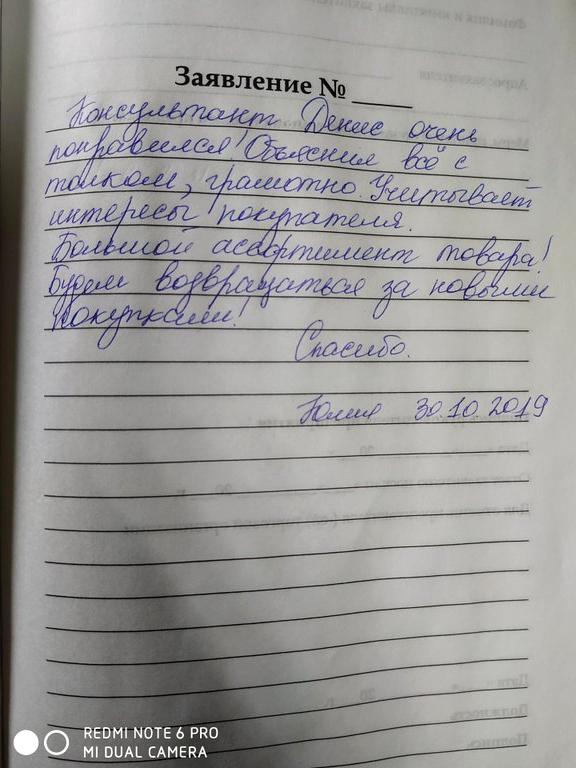 Заявление № ____
Консультант Денис очень
понравился! Объяснил всё с
толком, грамотно. Учитывает
интересы покупателя.
Большой ассортимент товара!
Будем возвращаться за новыми
покупками!
Спасибо.
Юлия 30.10.2019
REDMI NOTE 6 PRO
MI DUAL CAMERA